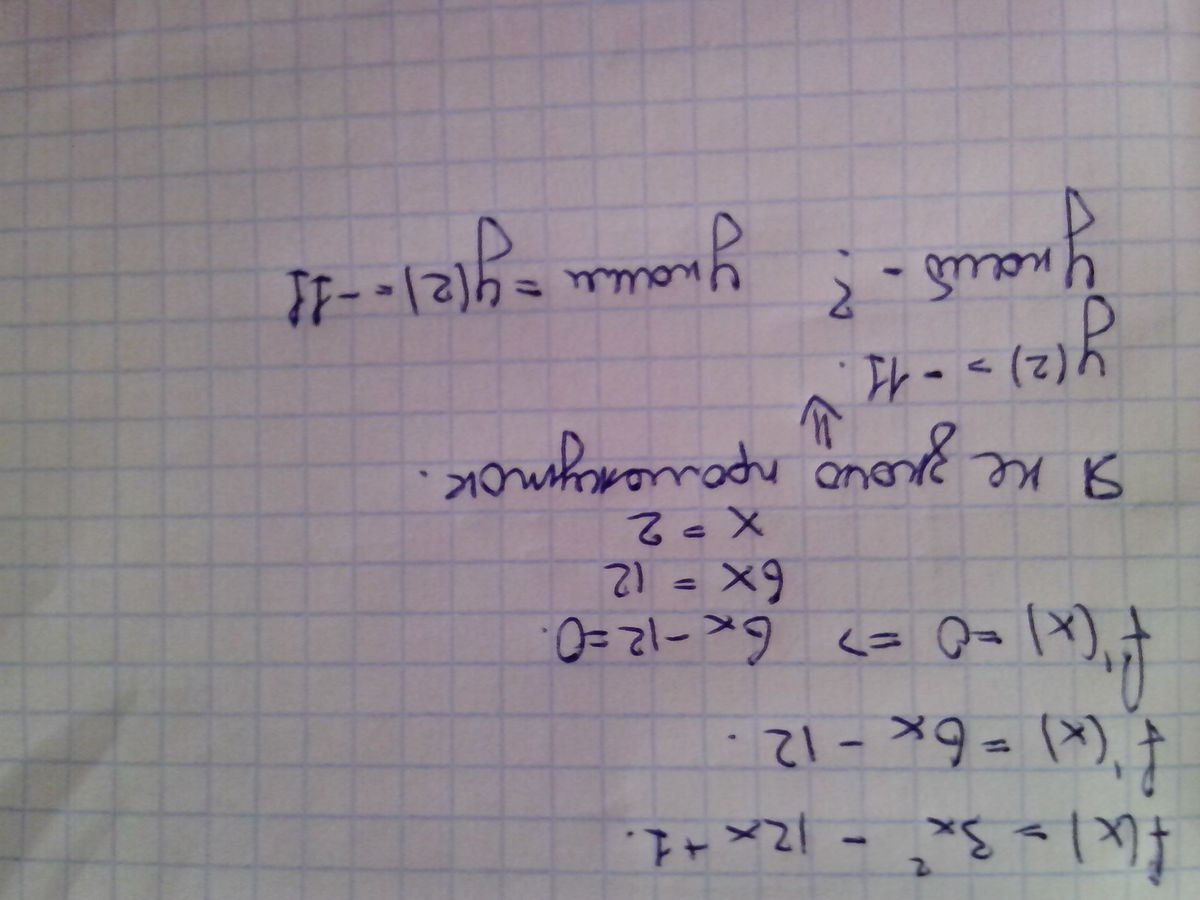 f(x) = 3x² - 12x + 1.
f'(x) = 6x - 12.
f'(x) = 0 => 6x - 12 = 0.
6x = 12
x = 2
Я не знаю промежуток.
⇓
y(2) = -11.
y наиб - ? y наим = y(2) = -11